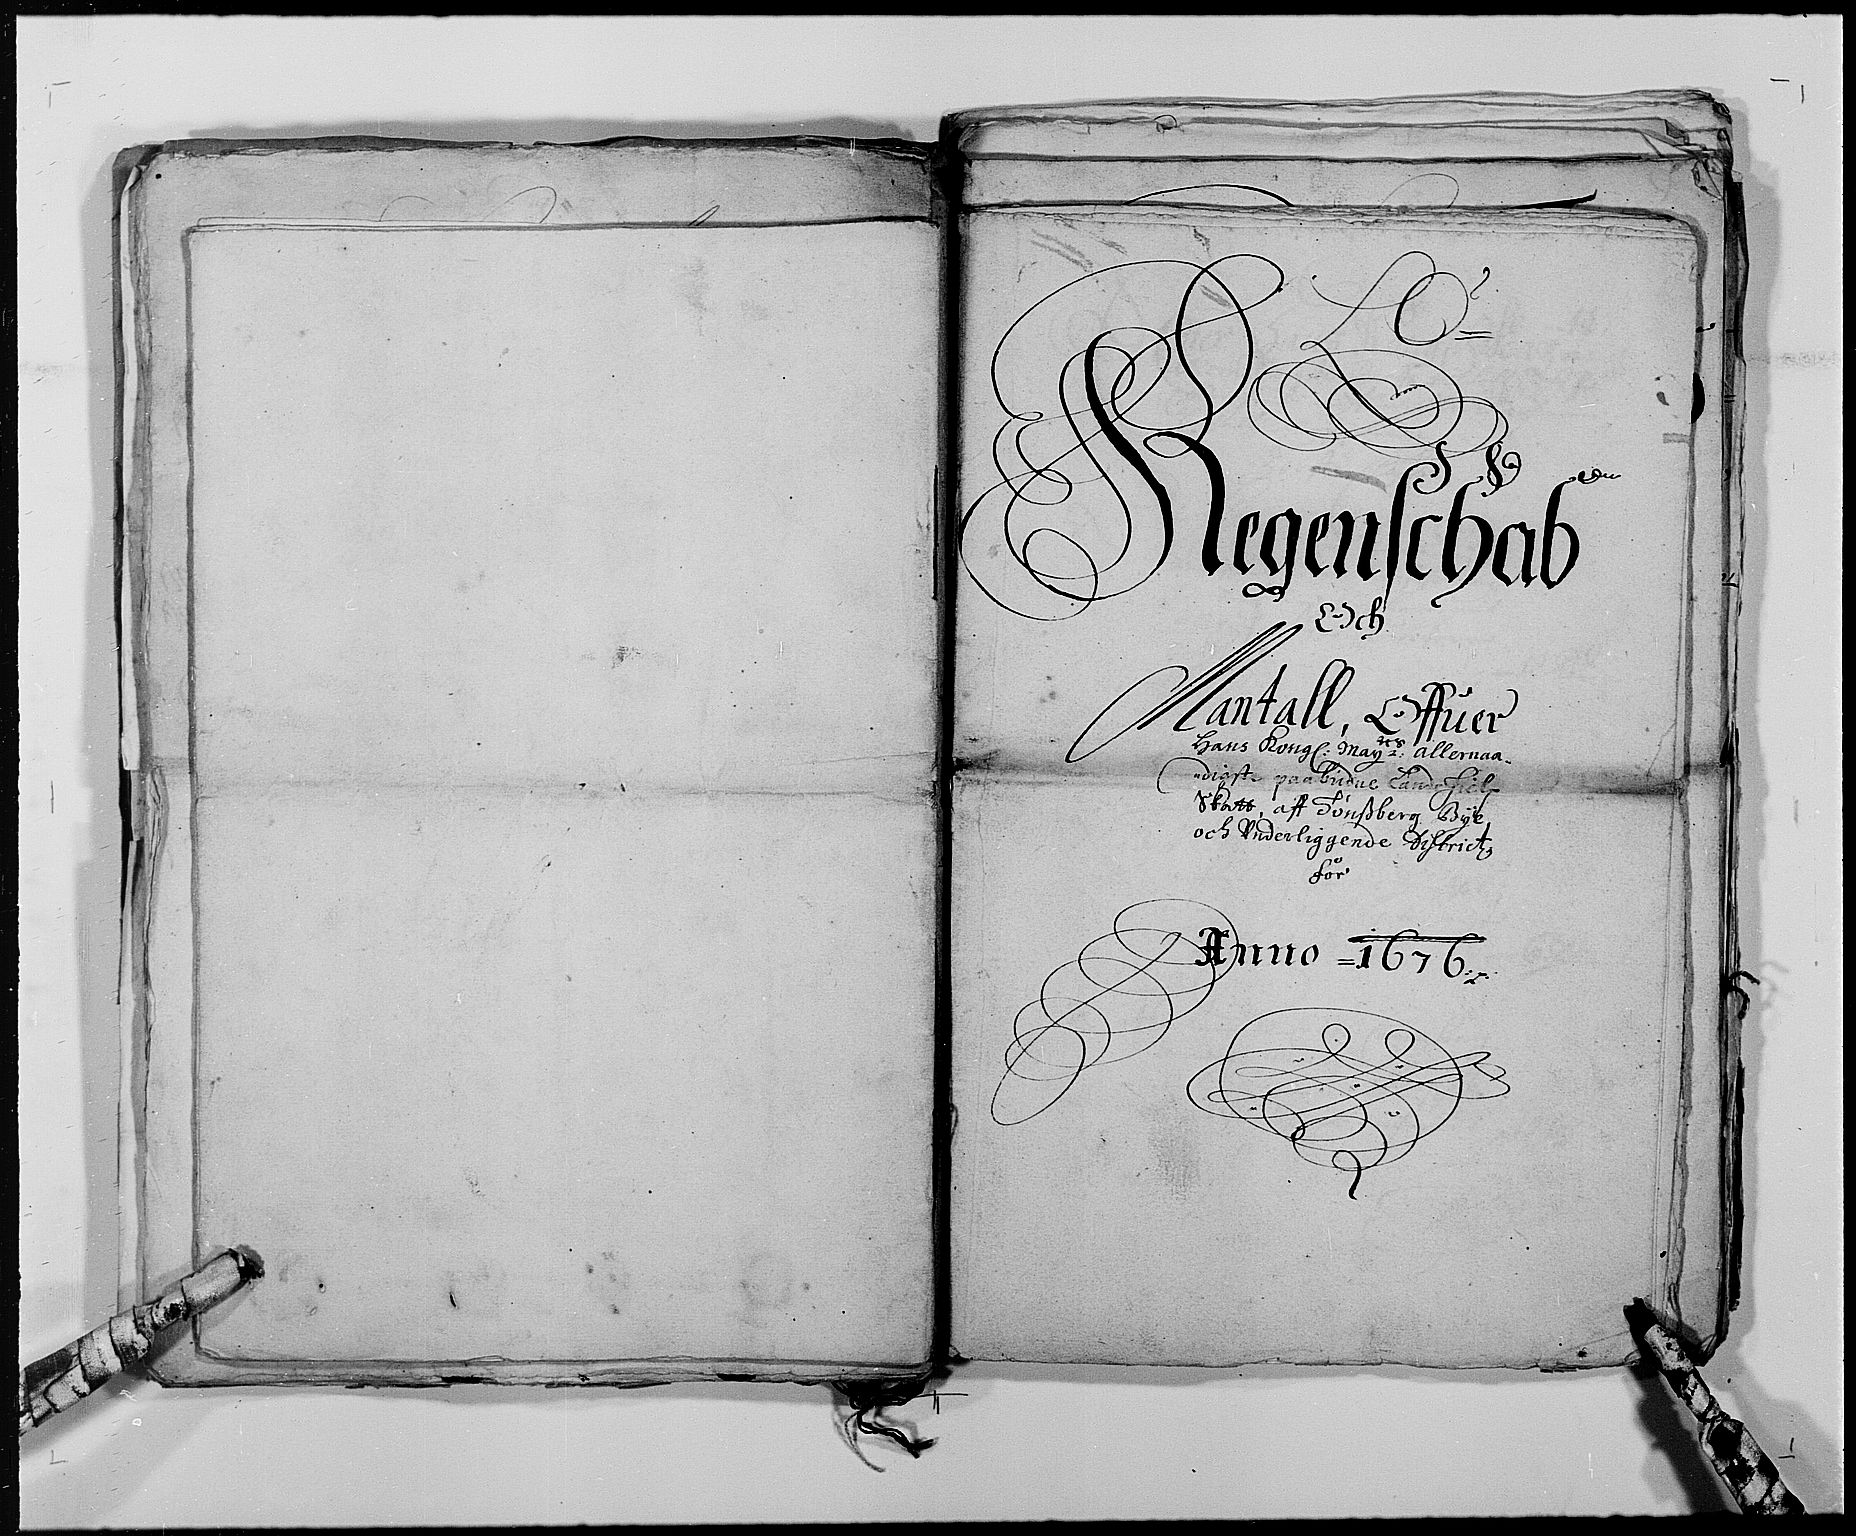 Regenschab
Och
Mantall, Offuer
Hans Kongl: Mayts: allernaa-
digste paabudne
Skatt, aff Tønßberg Bye,
och Vnderliggende District,
for
Anno =1676.